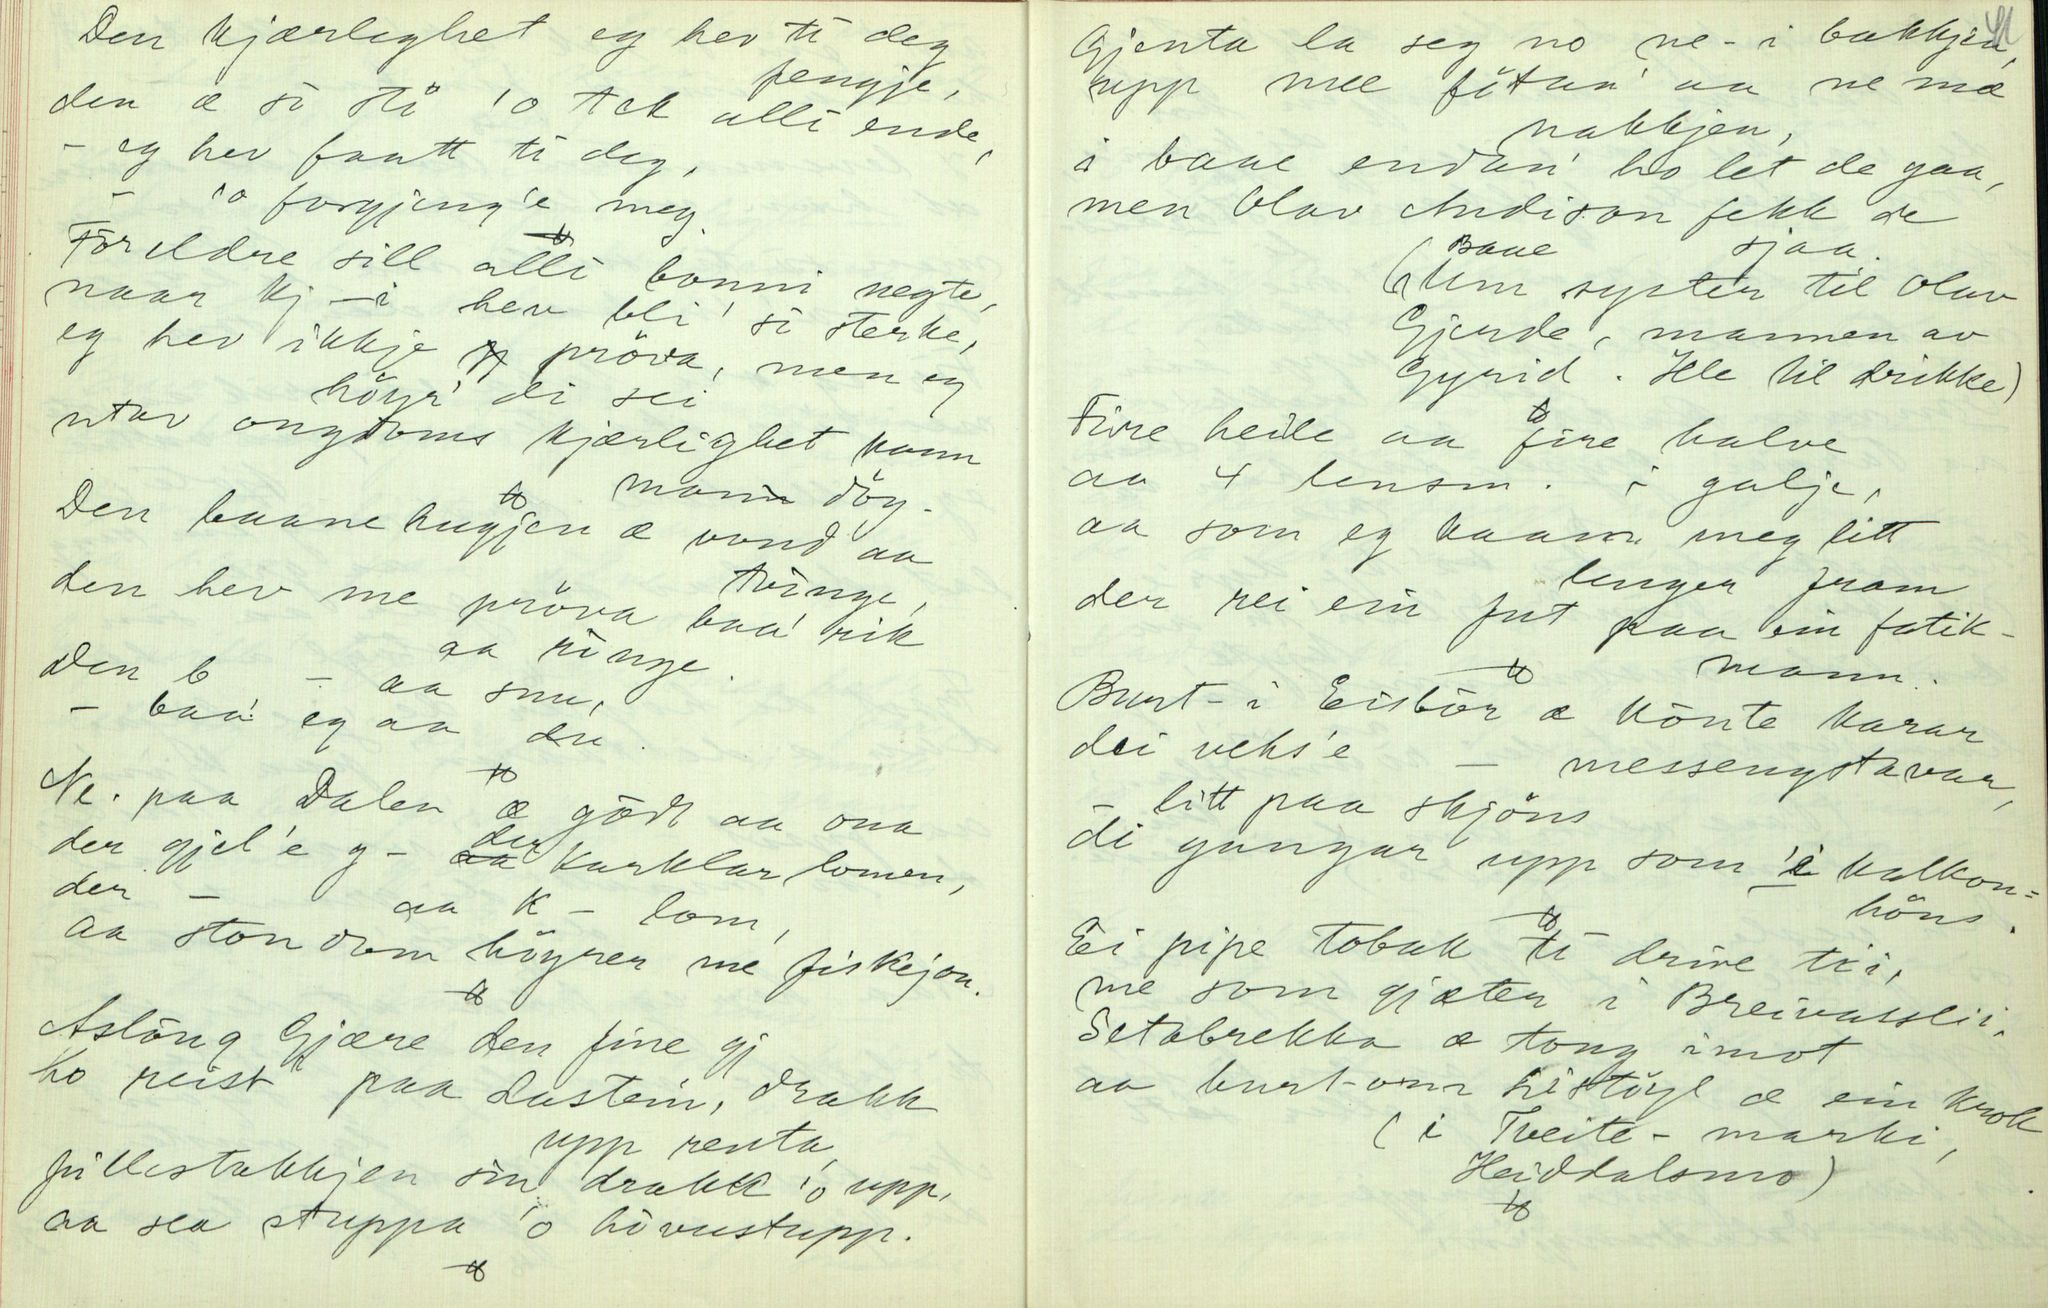 Den kjærleghet eg hev ti deg
fengje,
den æ si sti 'o tek alli ende,
- eg hev faatt ti deg,
- 'o forgjeng'e meg.
Foreldre sill alli bonni negte,
naar kj - i hev bli' si sterke,
eg hev ikkje pröva, men eg
höyr' di sei
utav ongdoms kjærlighet kann
mann döy.
Den baane hugjen æ vond aa
tvinge,
den hev me pröva baa' rik
aa ringe.
Den b - aa snu,
- baa' eg aa du.
Ne. paa Dalen æ godt aa
der gjel'e g - der karklar lomen,
der - aa K - lom,
aa ston dom höyrer me fiskejon.
Aslaug Gjære den fine gj
ho reist' paa Lastein, drakk
upp renta,
fillestakkjen sin drakk 'o upp,
aa sea stuppa 'o hövustupp.
41
Gjenta la seg no ne - i bakkjen,
upp mee fötan' aa ne mæ
nakkjen,
i baae endan' ho let de gaa,
men Olav Andison fekk de
baae sjaa.
(Um syster til Olav
Gjerde, mannen av
Gyrid. Ile til drikke)
Fire heile aa fire halve
aa 4 lensm. i galje,
aa som eg kaam meg litt
lenger fram
der rei ein fut paa ein fatik-
mann.
Burt - i Eisbör æ könte karar
dei veks'e - messengstavar,
- litt paa skjöns
di gangar upp som 'e kalkon=
höns.
Ei pipe tobak ti drive tii,
me som gjæter i Breivasslii.
Setabrekka æ tong imot
aa burt-om Listöyl æ ein krok
(i Tveite - marki,
Heiddalsmo)